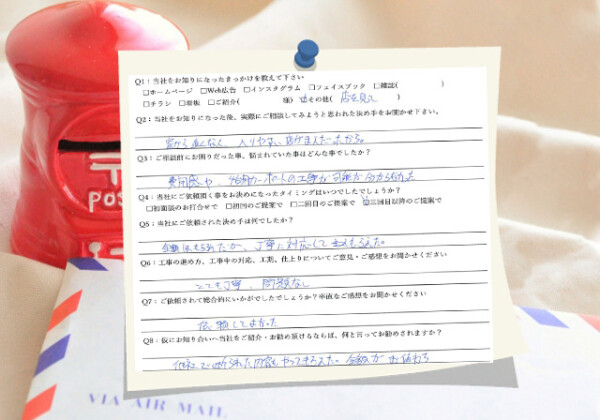 POS
Q1：当社をお知りになったきっかけを教えて下さい
□ホームページ □Web広告 □インスタグラム □フェイスブック □雑誌( )
□チラシ □看板 □ご紹介( 様) ☑その他( 店を見て
Q2：当社をお知りになった後、実際にご相談してみようと思われた決め手をお聞かせ下さい。
家から近くなく、入りやすい店がまえだったから。
Q3：ご相談前にお困りだった事、悩まれていた事はどんな事でしたか？
費用感や、カーポートの工事が可能か分からなかった
Q4：当社にご依頼頂く事をお決めになったタイミングはいつでしたでしょうか？
□初面談のお打合せで □初回のご提案で □二回目のご提案で ☑三回目以降のご提案で
Q5：当社にご依頼された決め手は何でしたか？
丁寧に対応してもらえた。
Q6：工事の進め方、工事中の対応、工期、仕上りについてご意見・ご感想をお聞かせください
とても丁寧、問題なし
Q7：ご依頼されて総合的にいかがでしたでしょうか？率直なご感想をお聞かせください
依頼してよかった
Q8：仮にお知り合いへ当社をご紹介・お勧め頂けるならば、何と言ってお勧めされますか？
他社で断られた内容もやってもらえた。金額が
VIA AIR MAIL